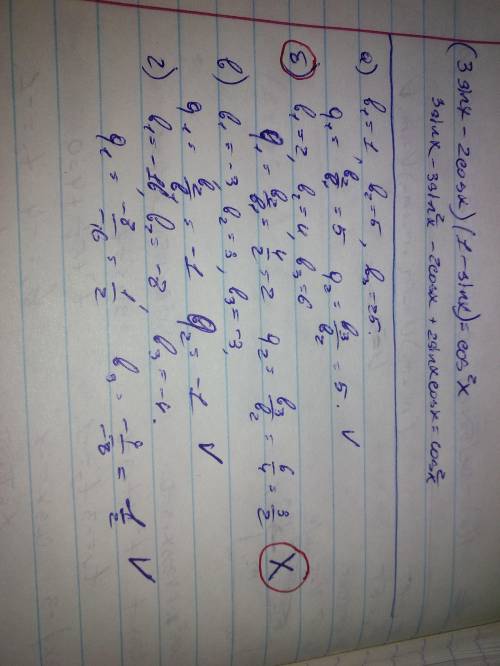 (3 sinx - 2cosx)(1 - sinx) = cos²x
3sinx - 3sin²x - 2cosx + 2sinxcosx = cos²x
а) b₁ = 1, b₂ = 5, b₃ = 25 -
q₁ = b₂/b₁ = 5 q₂ = b₃/b₂ = 5. V
б) b₁ = 2, b₂ = 4, b₃ = 6
q₁ = b₂/b₁ = 4/2 = 2 q₂ = b₃/b₂ = 6/4 = 3/2 X
в) b₁ = -3 b₂ = 3, b₃ = -3,
q₁ = b₂/b₁ = -1 q₂ = -1 V
г) b₁ = -16, b₂ = -8 b₃ = -4.
q₁ = -8/-16 = 1/2, b₃ = -4/-8 = 1/2 V